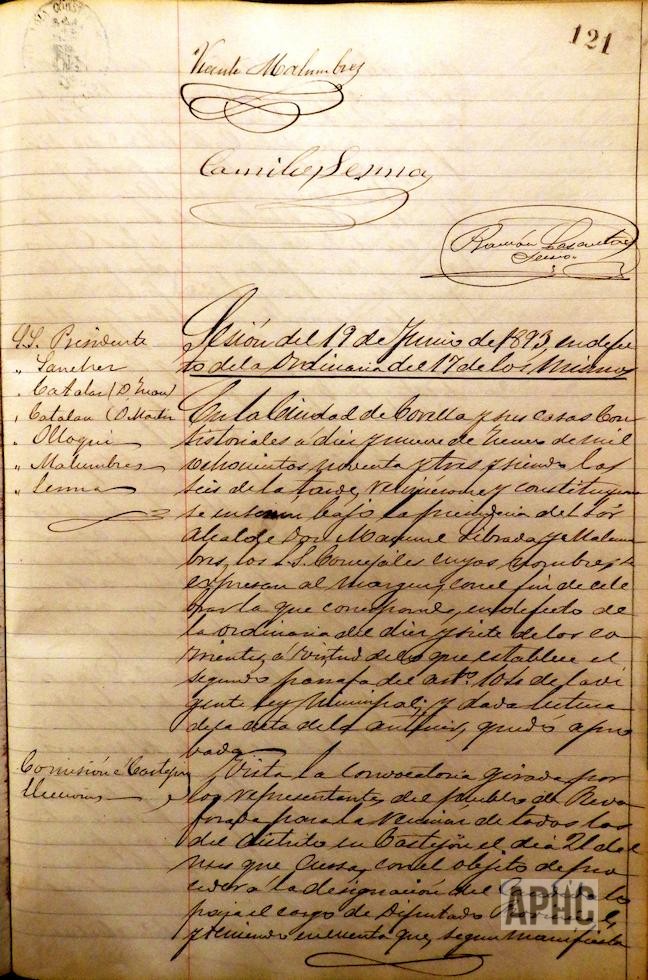 121
Vicente Malumbres
Camilo Senna
Ramón Lasantas
Srio.
S.S. Presidente
„ Sanchez
„ Catalan (D. Juan)
„ Catalan (D. Martin
„ Olloqui
„ Malumbres
„ Senna
Sesión del 19 de Junio de 1893, en defec
to de la Ordinaria del 17 de los mismos
En la Ciudad de Corella y sus casas Con
sistoriales a diez y nueve de de mil
ochocientos noventa y tres y siendo las
seis de la tarde, reunieron y constituyeron
se en sesion bajo la presidencia del Sor
Alcalde Don Manuel Librada y Malum
bres, los S.S. Concejales cuyos nombres se
expresan al margen, con el fin de cele
brar la que corresponde, en defecto de
la ordinaria del diez y siete de los co
rrientes, á virtud de lo que establece el
segundo parrafo del artº. 104 de la vi
gente ley Municipal; y dada lectura
de la acta de la anterior, quedó apro
bada.
Comisión á Castejon
Elecciones
Vista la convocatoria girada por
los representantes del pueblo de
para la reunion de todos los
del distrito en Castejón el dia 21 del
mes que cursa, con el objeto de pro
ceder a la designación del
para el cargo de Diputado
y teniendo en cuenta que, segun manifiesta
APHC